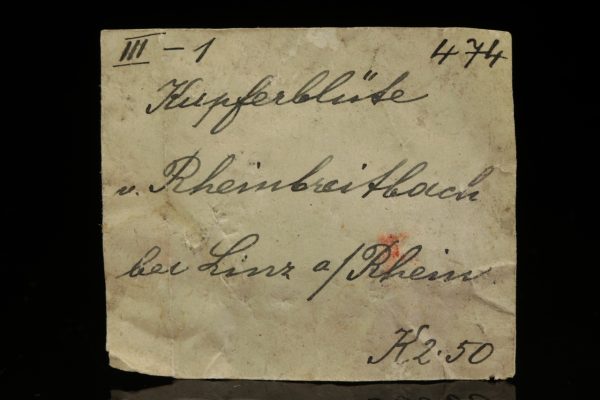 III - 1 474
Kupferblüte
v. Rheinbreitbach
bei Linz a/Rhein
K 2.50